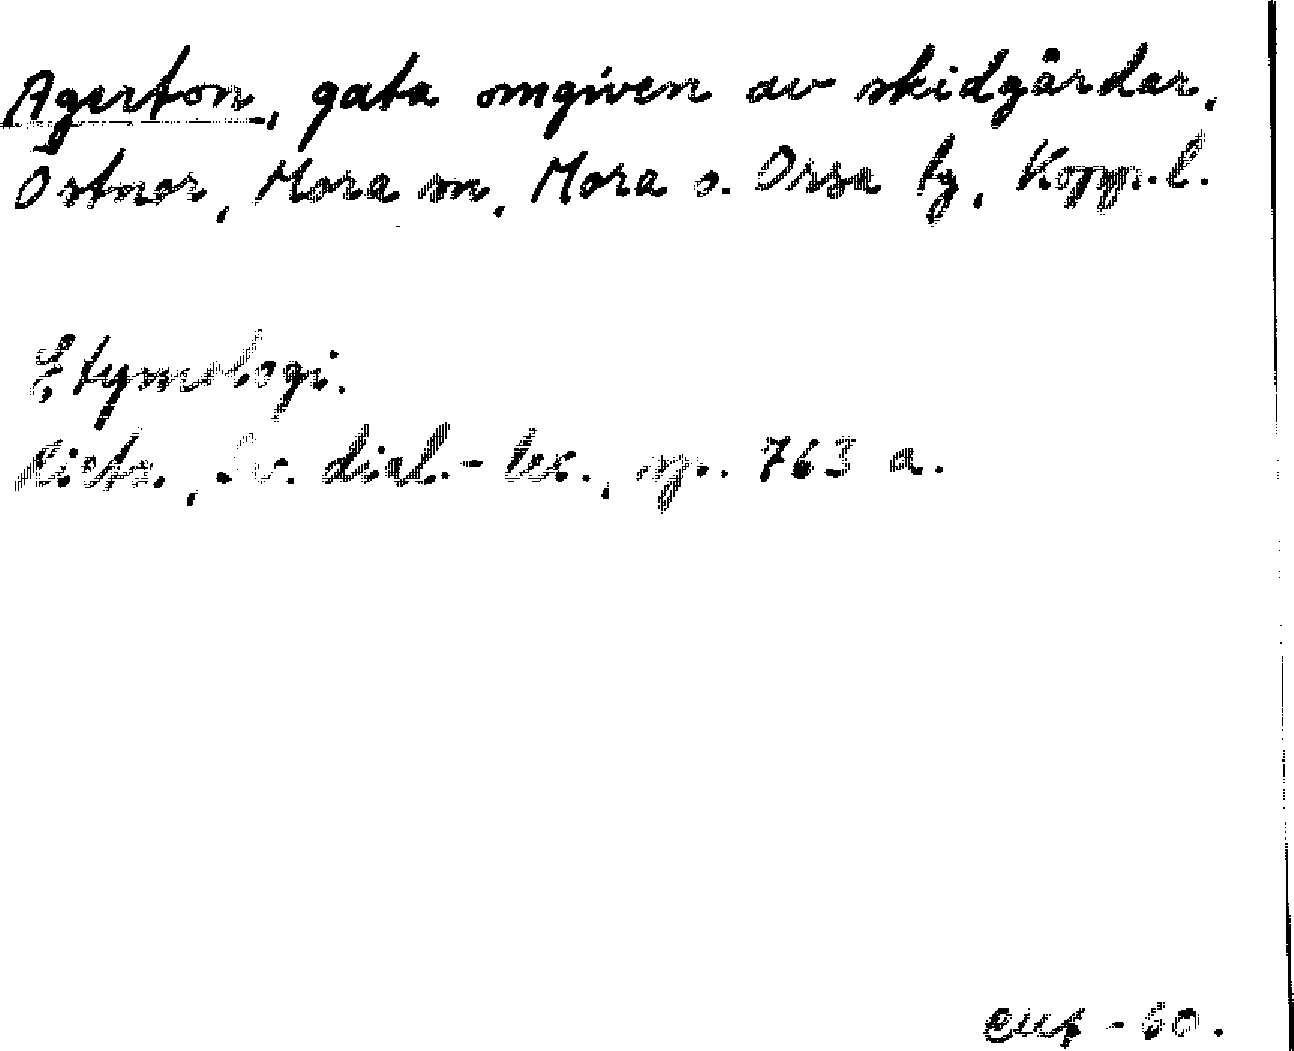 Agerton, gata omgiven av skidgårdar,
Östnor, Mora sn, Mora o. Orsa tg, Kopp. l.
Etymologi.
Rietz, Sv. dial.-lex., sp. 763 a.
- 60.